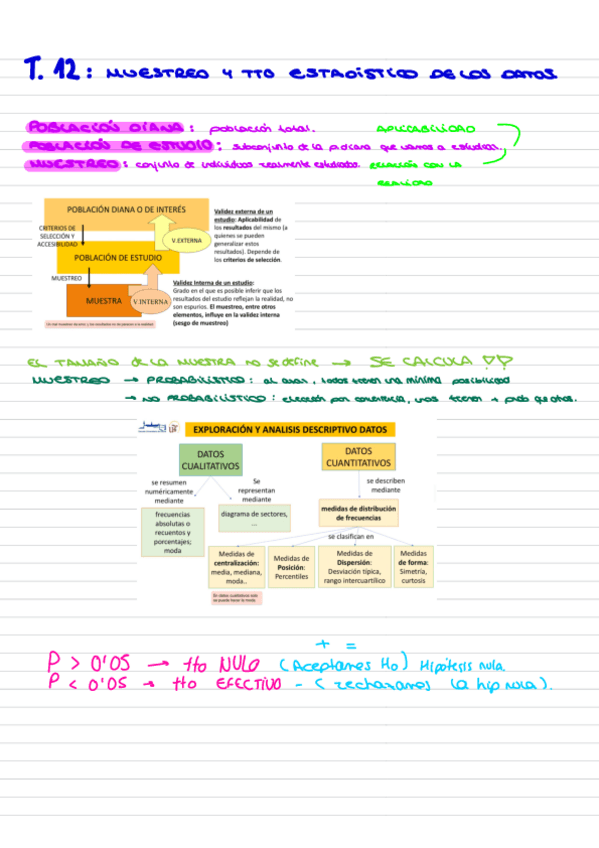 T.12: MUESTREO Y TTO ESTADÍSTICO DE LOS DATOS
POBLACIÓN DIANA: población total. APLICABILIDAD
POBLACIÓN DE ESTUDIO: subconjunto de la p.diana que vamos a estudiar.
MUESTREO: conjunto de individuos realmente estudiados. RELACIÓN CON LA
REALIDAD
POBLACIÓN DIANA O DE INTERÉS
CRITERIOS DE
SELECCIÓN Y
ACCESIBILIDAD
V.EXTERNA
POBLACIÓN DE ESTUDIO
MUESTREO
MUESTRA
V.INTERNA
Validez externa de un
estudio: Aplicabilidad de
los resultados del mismo (a
quienes se pueden
generalizar estos
resultados). Depende de
los criterios de selección.
Validez Interna de un estudio:
Grado en el que es posible inferir que los
resultados del estudio reflejan la realidad, no
son espurios. El muestreo, entre otros
elementos, influye en la validez interna
(sesgo de muestreo)
EL TAMAÑO de LA MUESTRA no se define → SE CALCULA
MUESTREO → PROBABILÍSTICO: al azar, todos tienen una mínima posibilidad
→ NO PROBABILÍSTICO: elección por conveniencia, unos tienen + prob que otros.
EXPLORACIÓN Y ANALISIS DESCRIPTIVO DATOS
DATOS
CUALITATIVOS
DATOS
CUANTITATIVOS
se resumen
numéricamente
mediante
Se
representan
mediante
se describen
mediante
frecuencias
absolutas o
recuentos y
porcentajes;
moda
diagrama de sectores,
...
medidas de distribución
de frecuencias
se clasifican en
Medidas de
centralización:
media, mediana,
moda..
Medidas de
Posición:
Percentiles
Medidas de
Dispersión:
Desviación típica,
rango intercuartílico
Medidas
de forma:
Simetría,
curtosis
En datos cualitativos solo
se puede hacer la moda
+ =
P > 0'05 → tto NULO (Aceptamos Ho) Hipótesis nula.
P < 0'05 → tto EFECTIVO - (rechazamos la hip nula).